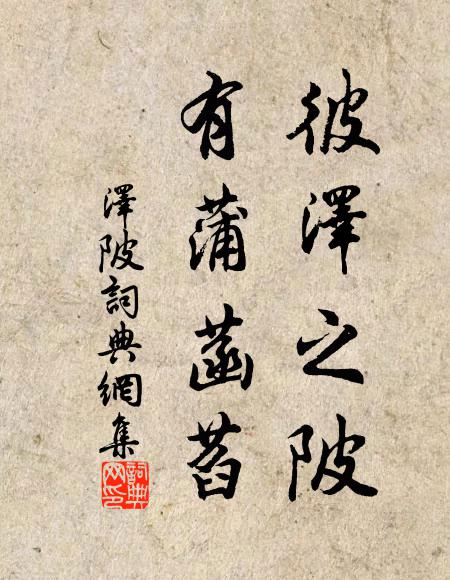 彼澤之陂
有蒲菡萏
澤陂詞典網集
詞典网印